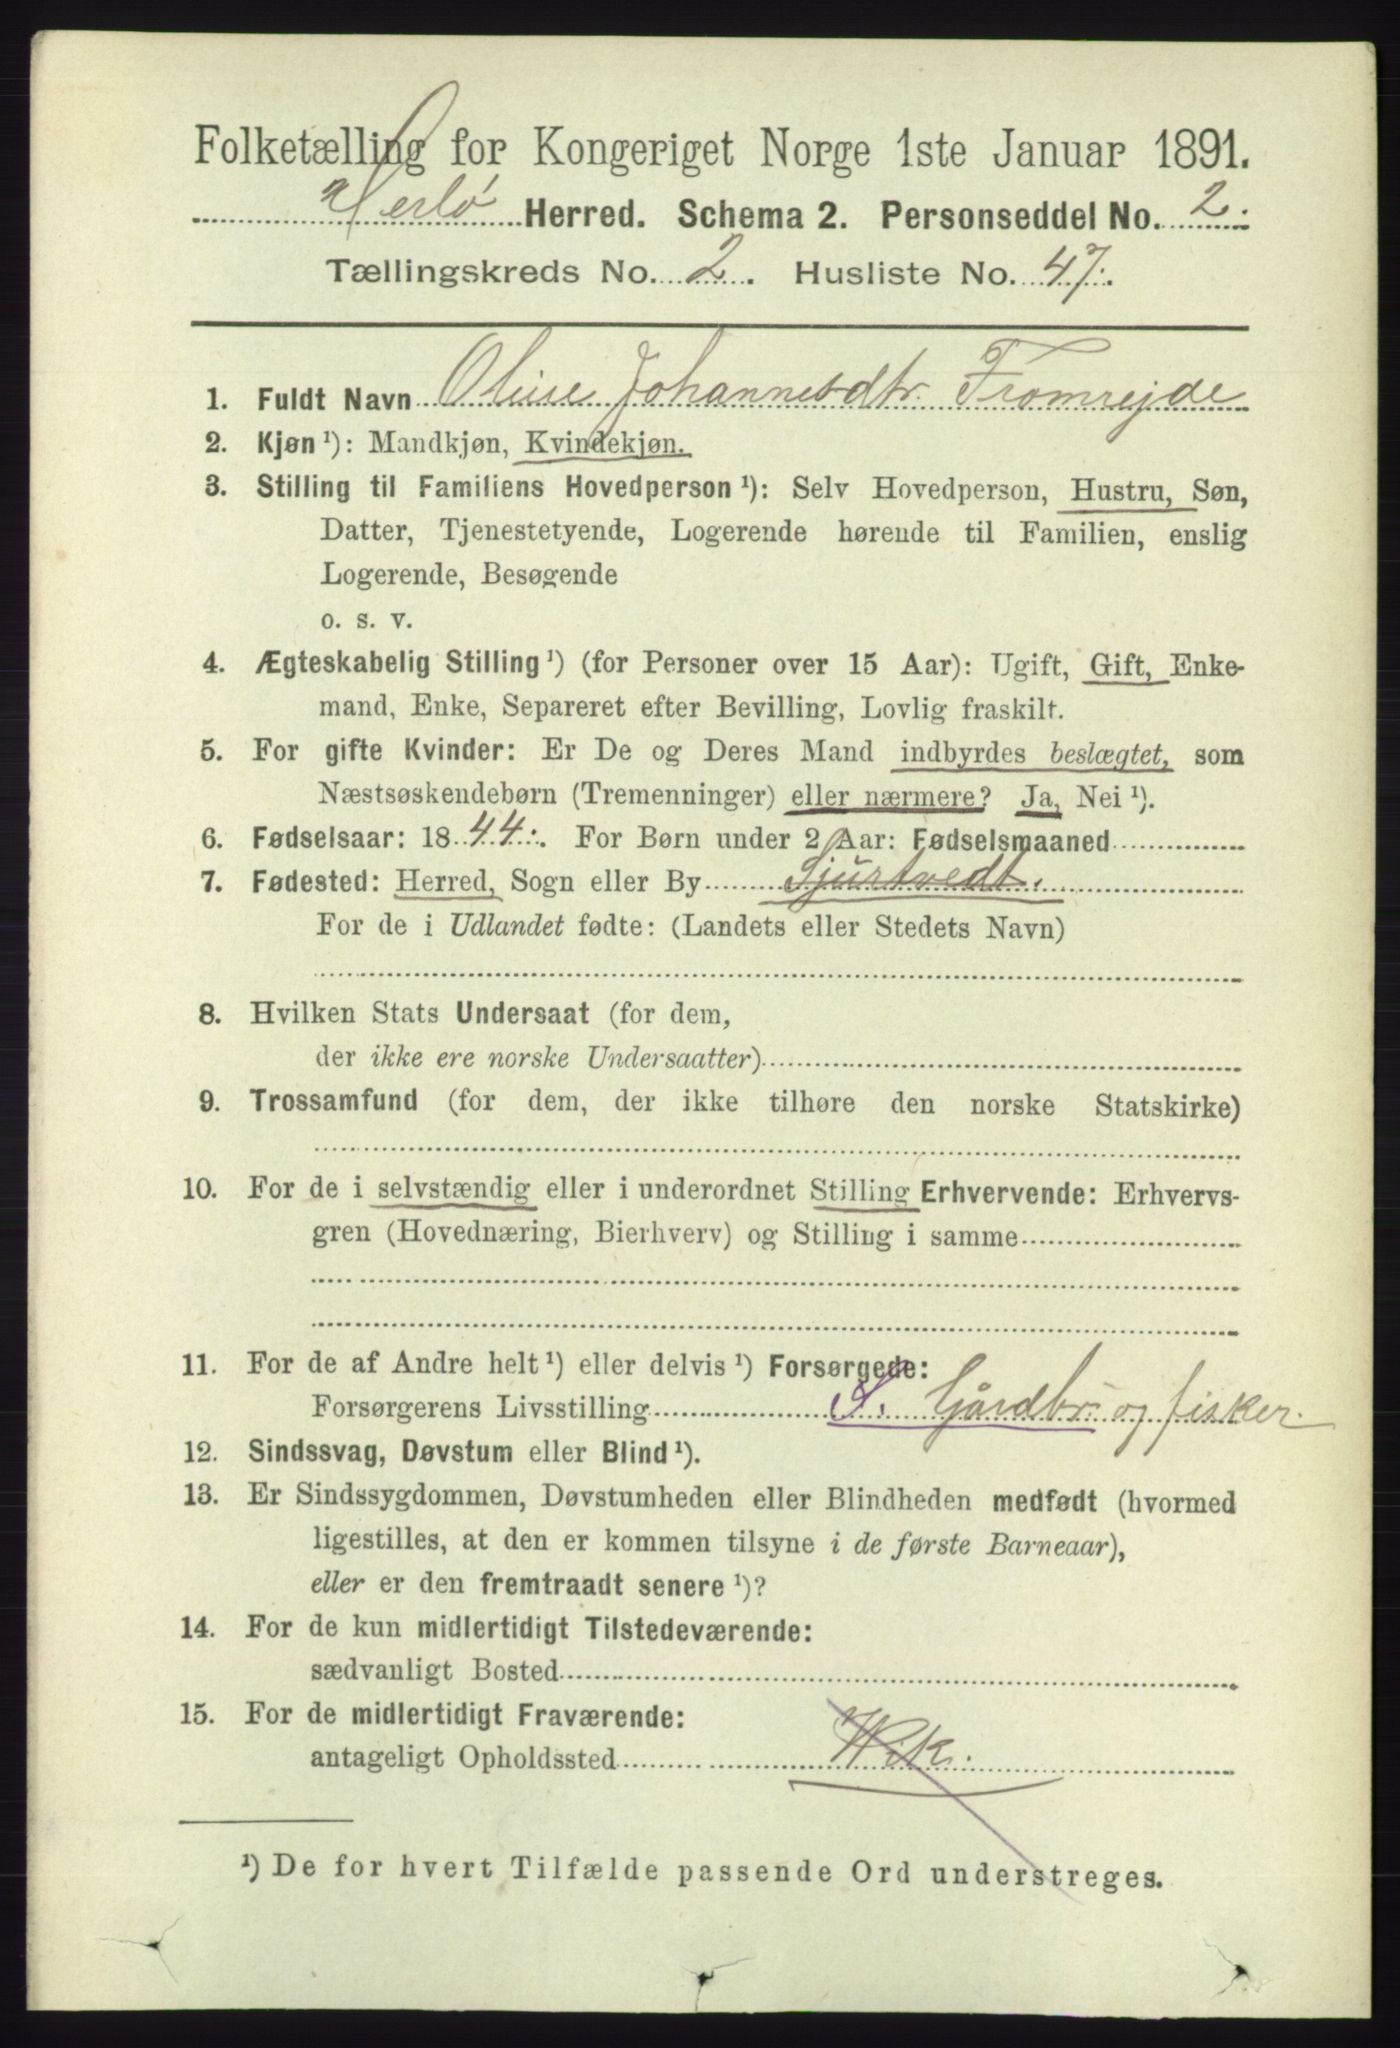 Folketælling for Kongeriget Norge 1ste Januar 1891.
Herlø Herred. Schema 2. Personseddel No. 2.
Tællingskreds No. 2. Husliste No. 47.
1. Fuldt Navn Oluse Johannesdtr. Fromrejde
2. Kjøn ¹): Mandkjøn, Kvindekjøn.
3. Stilling til Familiens Hovedperson ¹): Selv Hovedperson, Hustru, Søn,
Datter, Tjenestetyende, Logerende hørende til Familien, enslig
Logerende, Besøgende
o. s. v.
4. Ægteskabelig Stilling ¹) (for Personer over 15 Aar): Ugift, Gift, Enke-
mand, Enke, Separeret efter Bevilling, Lovlig fraskilt.
5. For gifte Kvinder: Er De og Deres Mand indbyrdes beslægtet, som
Næstsøskendebørn (Tremenninger) eller nærmere? Ja, Nei ¹).
6. Fødselsaar: 1844. For Børn under 2 Aar: Fødselsmaaned
7. Fødested: Herred, Sogn eller By Sjurtvedt.
For de i Udlandet fødte: (Landets eller Stedets Navn)
8. Hvilken Stats Undersaat (for dem,
der ikke ere norske Undersaatter)
9. Trossamfund (for dem, der ikke tilhøre den norske Statskirke)
10. For de i selvstændig eller i underordnet Stilling Erhvervende: Erhvervs-
gren (Hovednæring, Bierhverv) og Stilling i samme
11. For de af Andre helt ¹) eller delvis ¹) Forsørgede:
Forsørgerens Livsstilling S. Gårdbr. og fisker.
12. Sindssvag, Døvstum eller Blind ¹).
13. Er Sindssygdommen, Døvstumheden eller Blindheden medfødt (hvormed
ligestilles, at den er kommen tilsyne i de første Barneaar),
eller er den fremtraadt senere ¹)?
14. For de kun midlertidigt Tilstedeværende:
sædvanligt Bosted
15. For de midlertidigt Fraværende:
antageligt Opholdssted Wik.
¹) De for hvert Tilfælde passende Ord understreges.